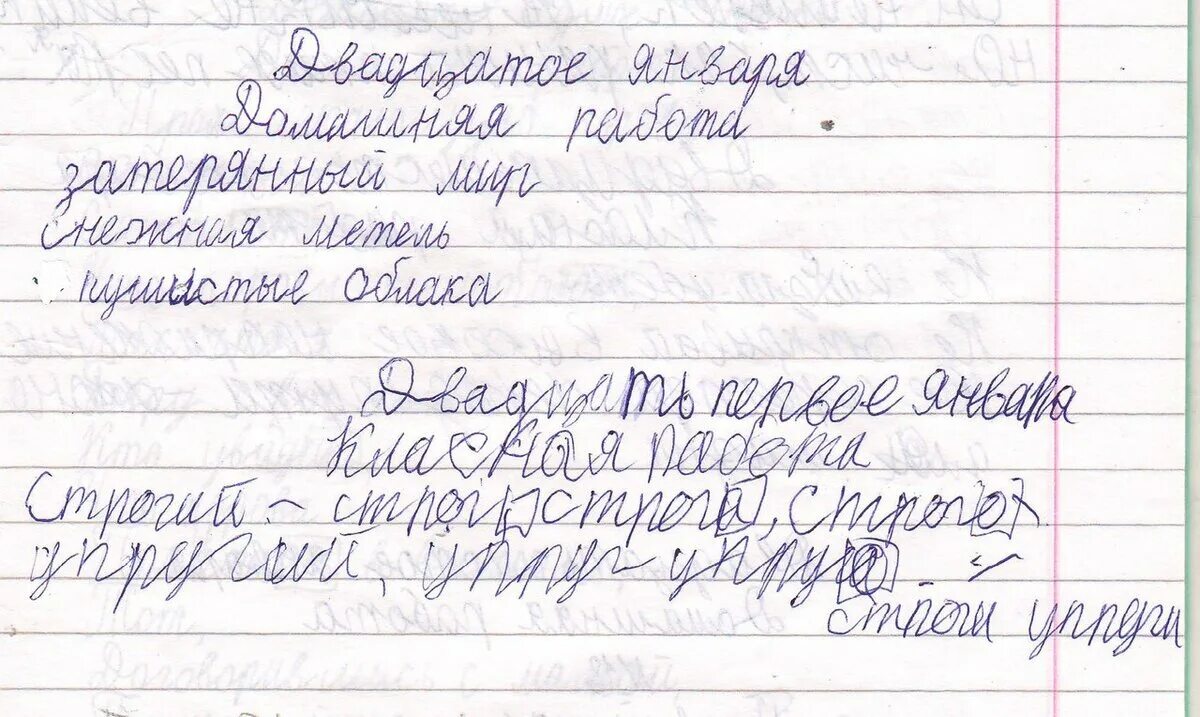 Двадцатое января
Домашняя работа
затерянный мир
Снежная метель
пушистые облака
Двадцать первое января
Класная работа
Строгий - строг, строга, строго
упругий, упруг - упруга
строги упруги